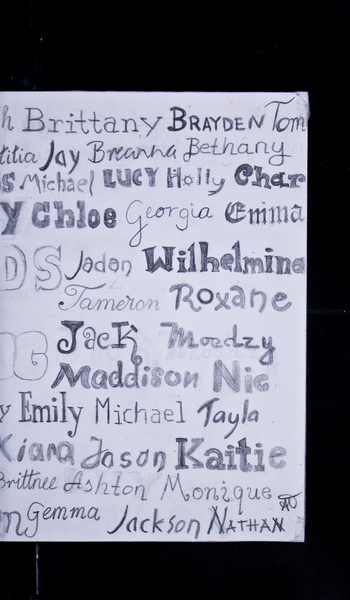 h Brittany BRAYDEN Tom
titia Jay Breanna Bethany
S Michael LUCY Holly Char
y Chloe Georgia Emma
DS Jadon Wilhelmina
Tameron Roxane
OG Jack Moodzy
Maddison Nic
y Emily Michael Tayla
Kiara Jason Kaitie
Brittnee Ashton Monique
n Gemma Jackson NATHAN